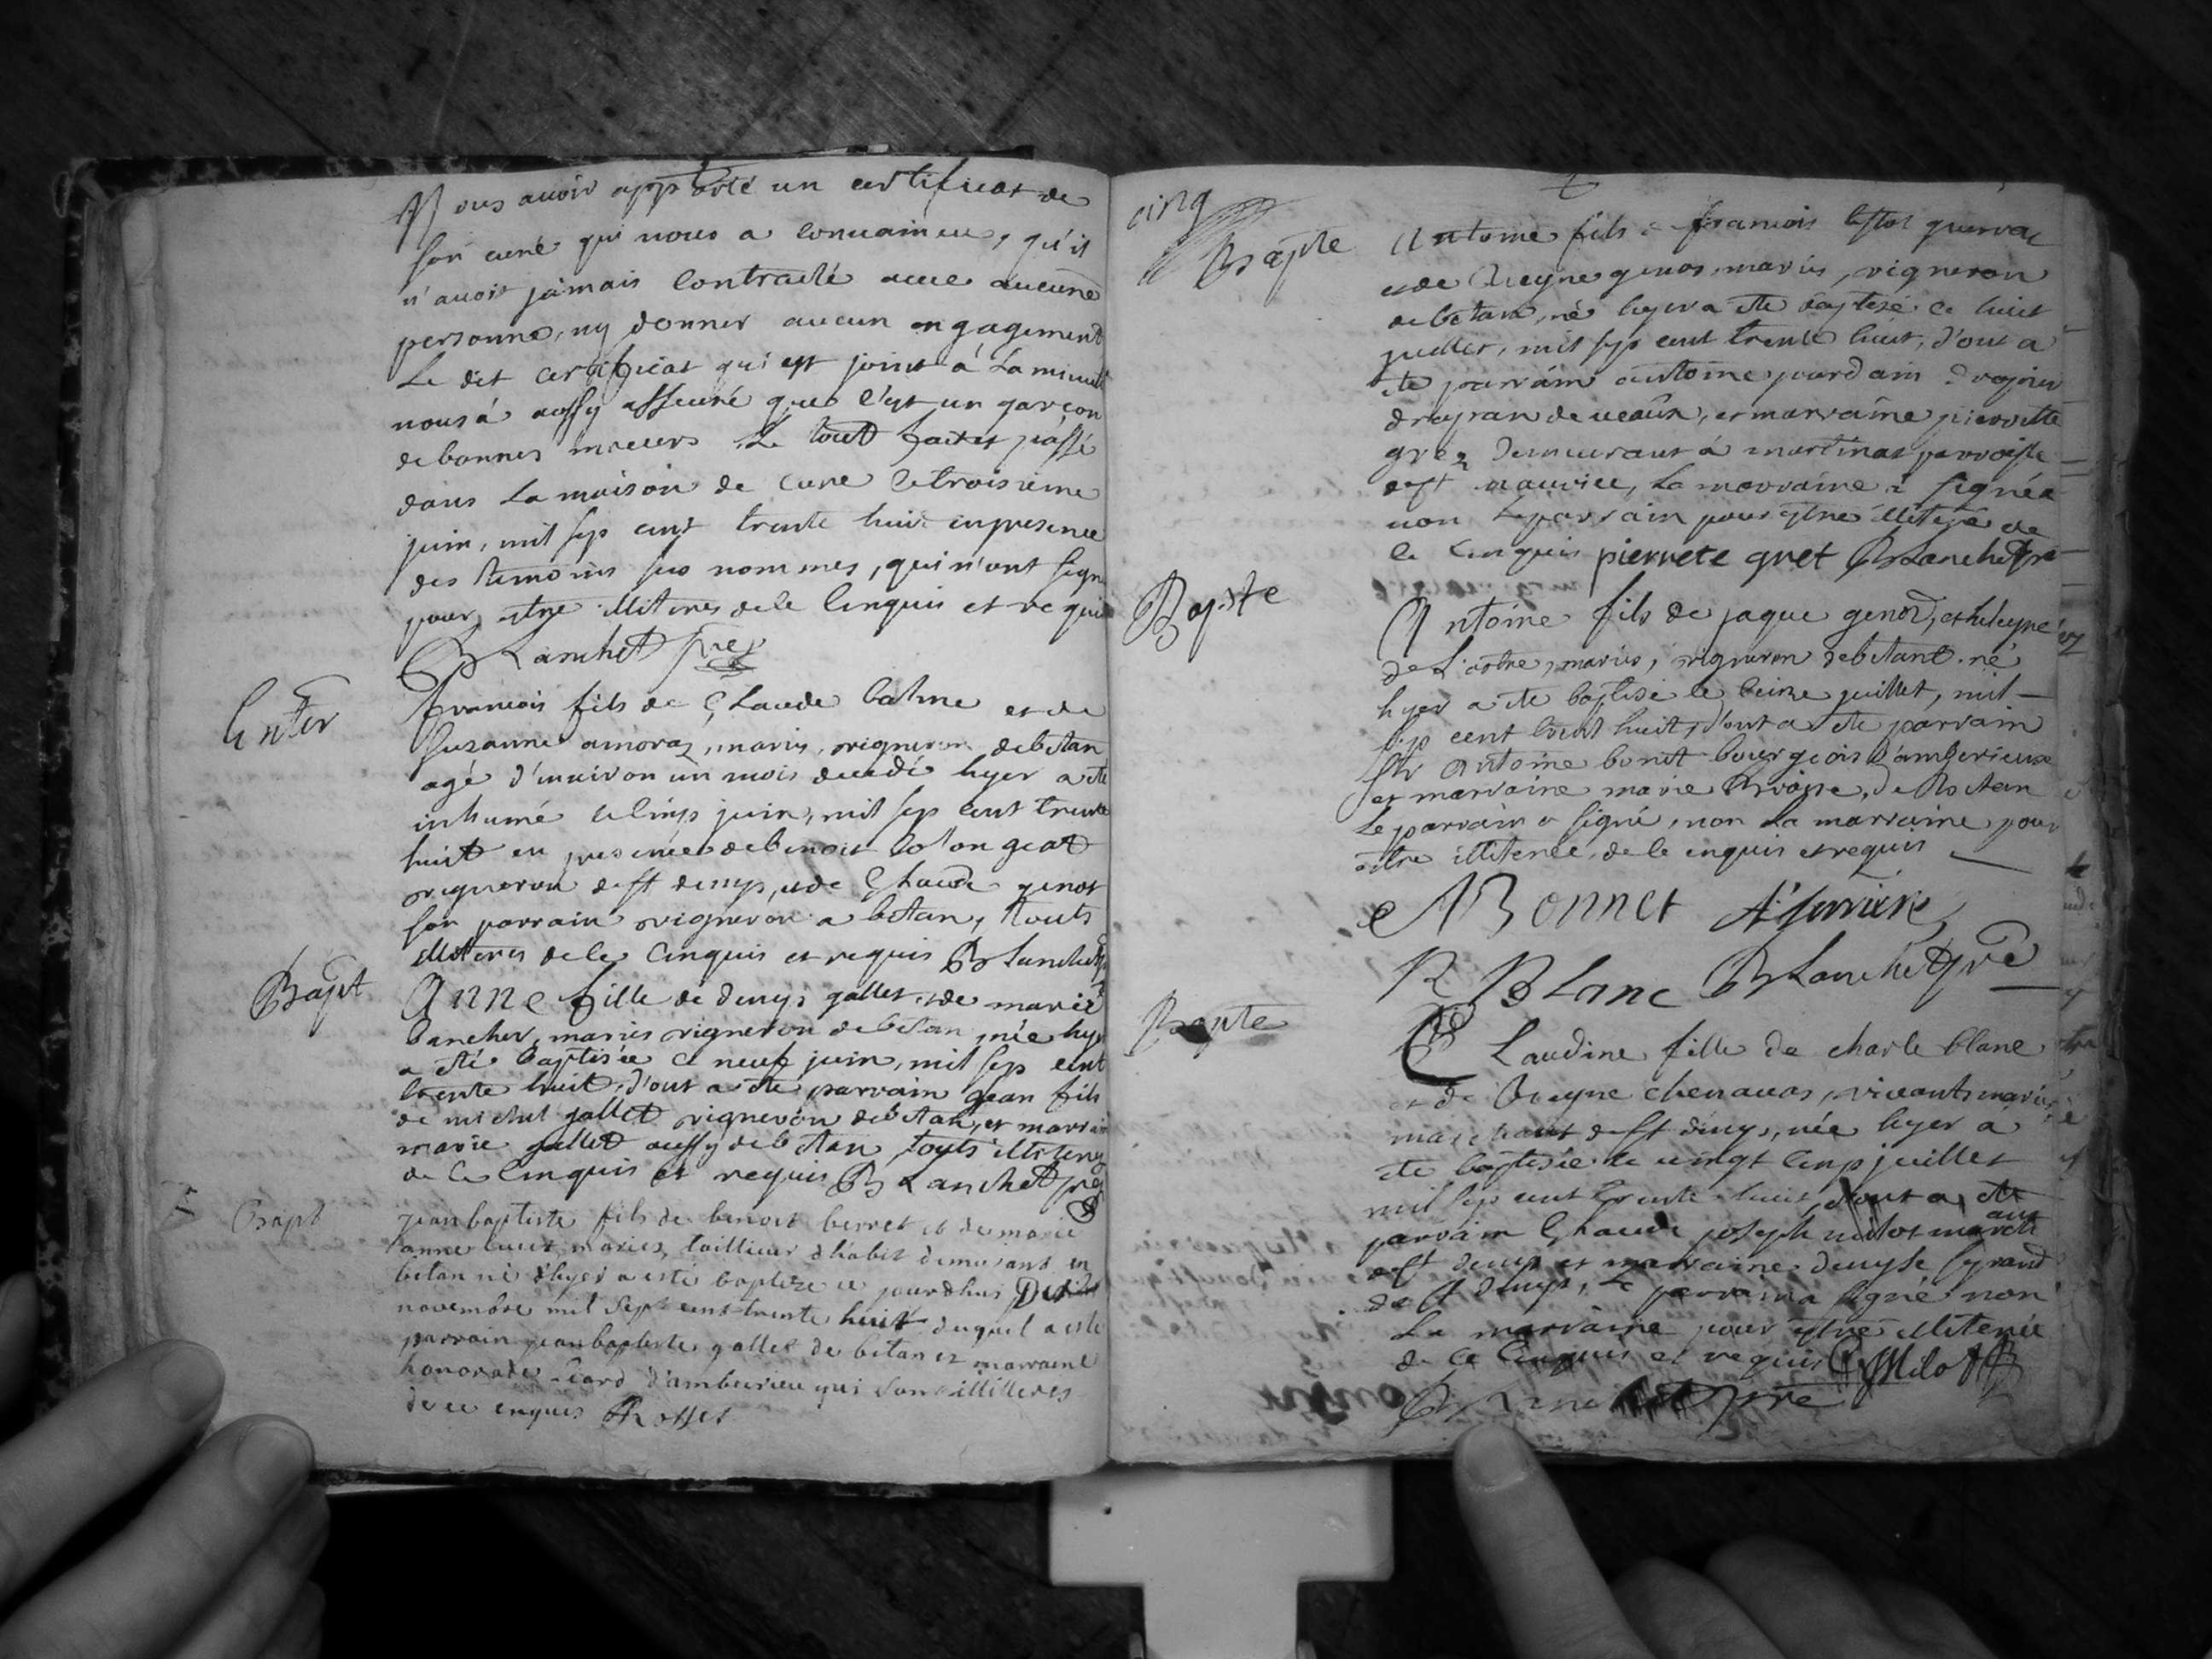 Nous avoir apporté un certificat de
son curé qui nous a convaincu, qu'il
n'avoit jamais contracté avec aucune
personne, ny donner aucun engagement
Le dit certificat qui est joint á La minute
nous á aussy asseuré que c'est un garçon
de bonnes moeurs. Le tout fait et passé
dans La maison de cure le troisieme
juin, mil sep cent trente huit en presence
des temoins sus nommes, qui n'ont signé
pour estre illiteres de le enquis et requis
Blanchet pre
Enter
francois fils de Claude balme et de
Suzanne amoraz, maries, vigneron de betan
agé d'environ un mois decedé hyer a ete
inhumé le cinq juin, mil sep cent trente
huit en presence de benoit
vigneron de st denys, et de Claude genot
son parrain vigneron a betan, touts
illiteres de le enquis et requis Blanchet
Bapt
Anne fille de denys gallet, et de marie
mariés vigneron de betan, née hyer
a été baptisée ce neuf juin, mil sep cent
trente huit, d'ont a ete parrain jean fils
de michel gallet vigneron de betan, et marraine
marie gallet aussy de betan touts illiteres
de ce enquis et requis Blanchet pre
Bapt
jean baptiste fils de benoit berret et de marie
anne maries, taillieur d'habit demeurant en
betan né d'hyer a esté baptize ce jourdhui
novembre mil sept cent trente huit duquel a esté
parrain jean baptiste gallet de betan et marraine
honorade d'amberieu qui sont illitteres
de ce enquis
cinq
Bapte
Antoine fils de francois
et de genot, mariés, vigneron
de betan, né hyer a ete baptisé ce huit
juillet, mil sep cent trente huit, d'ont a
ete parrain antoine jourdain
de veaux, et marraine pierrette
grez demeurant á martinat parroisse
de st maurice, La marraine a signée
non Le parrain pour estre illiteré de
ce enquis pierrete gret Blanchet pre
Bapte
Antoine fils de jaque genod, et
de L'astre, mariés, vigneron de betant né
hyer a ete baptisé le juillet, mil
sep cent trent huit, d'ont a ete parrain
Sr Antoine bonet bourgeois d'amberieux
et marraine marie de Betan
Le parrain a signé, non La marraine pour
estre illiterée, de le enquis et requis
A Bonnet
R Blanc Blanchet pre
Bapte
Claudine fille de charle blanc
et de chenavas, vivants mariés
marchant de st denys, née hyer a
ete baptisée le vingt cinq juillet
mil sep cent trente huit, d'ont a ete
parrain Claude joseph milot march
ant
de st denys et marraine denyse
de st denys, Le parrain a signé non
La marraine pour estre illiterée
de ce enquis et requis Milot
Blanchet pre